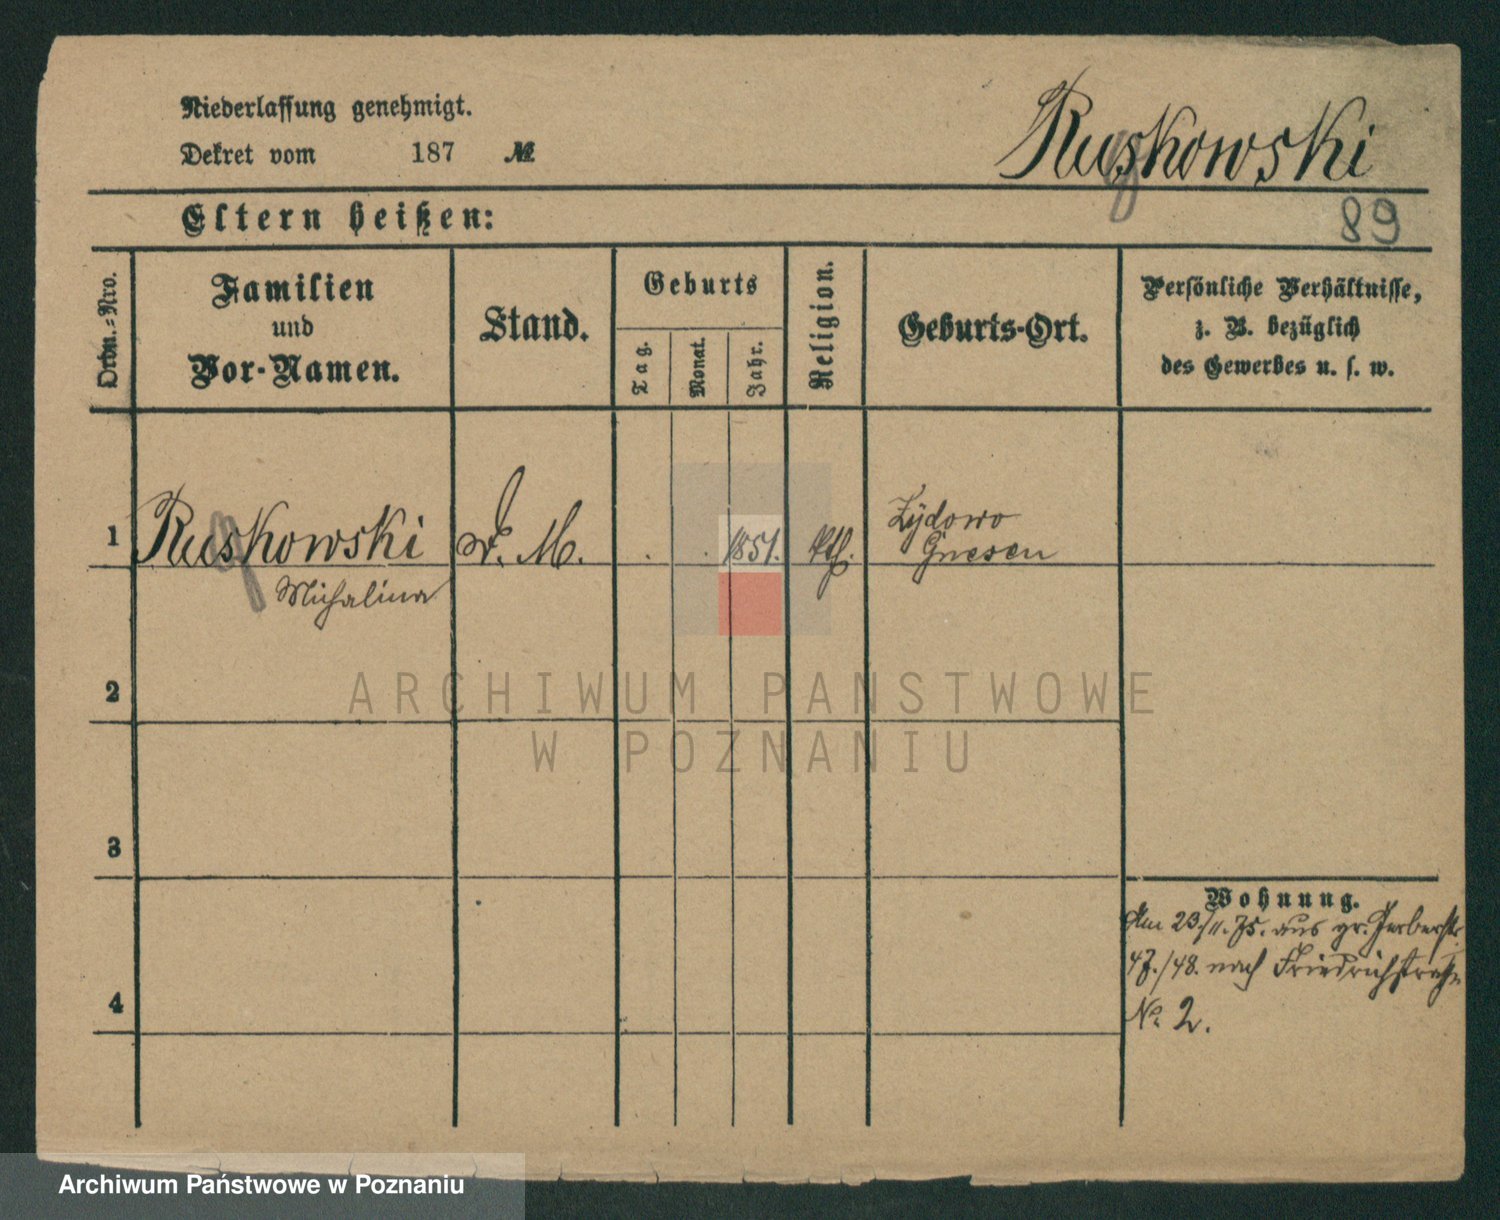 Niederlassung genehmigt.
Dekret vom 187 №
Ruskowski
89
Eltern heißen:
Ordn.-Nro.
Familien
und
Vor-Namen.
Stand.
Geburts
Tag.
Monat.
Jahr.
Religion.
Geburts-Ort.
Persönliche Verhältnisse,
z. B. bezüglich
des Gewerbes u. s. w.
1 Ruskowski M. 1851. kth. Zydowo
Gnesen
Michalina
ARCHIWUM PANSTWOWE
W POZNANIU
2
3
4
Wohnung.
Am 23/11.75. aus gr. Gerberstr.
47./48. nach Friedrichstraße
No 2.
Archiwum Państwowe w Poznaniu